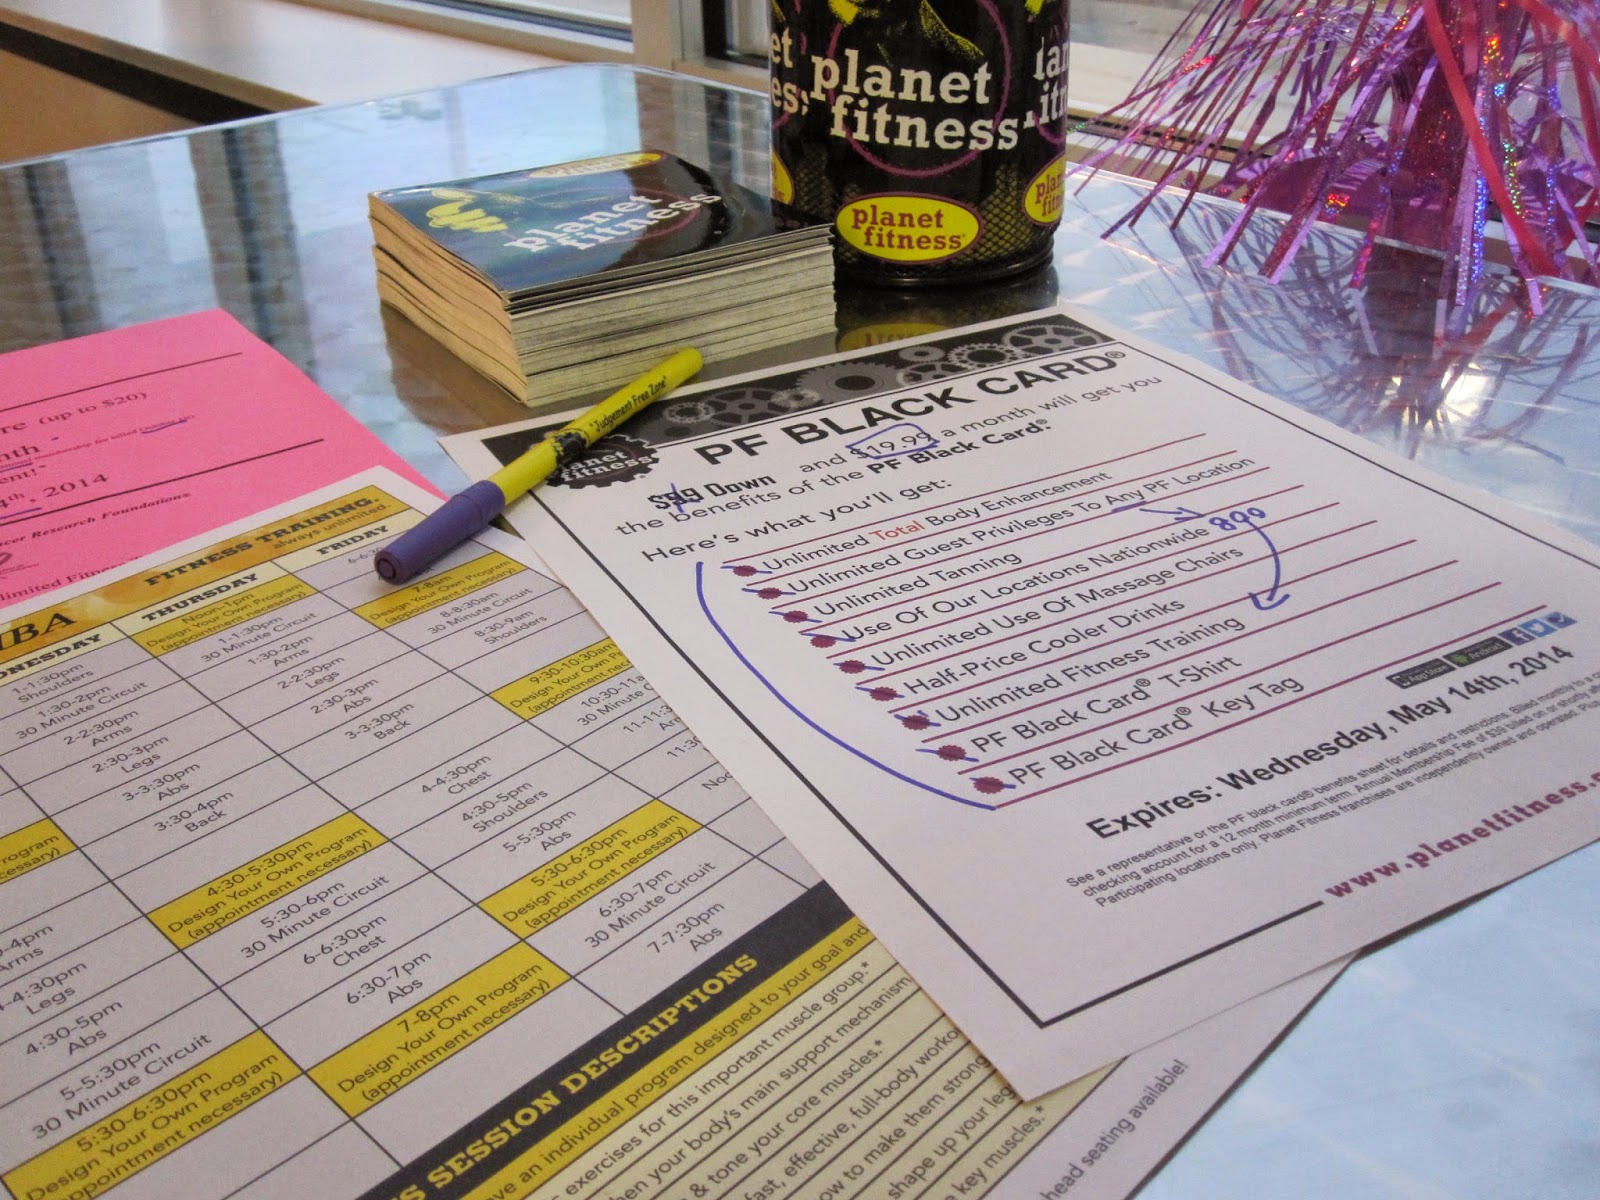 planet
fitness
planet
fitness
planet
fitness
"Judgement Free Zone"
planet
fitness
PF BLACK CARD®
Down and $19.99 a month will get you
the benefits of the PF Black Card®.
Here's what you'll get:
Unlimited Total Body Enhancement
Unlimited Guest Privileges To Any PF Location
Unlimited Tanning
Use Of Our Locations Nationwide 800
Unlimited Use Of Massage Chairs
Half-Price Cooler Drinks
Unlimited Fitness Training
PF Black Card® T-Shirt
PF Black Card® Key Tag
AppStore
Android
Expires: Wednesday, May 14th, 2014
See a representative or the PF black card® benefits sheet for details and restrictions. Billed monthly to a
checking account for a 12 month minimum term. Annual Membership Fee of $39 billed on or shortly
Participating locations only. Planet Fitness franchises are independently owned and operated.
www.planetfitness.
(up to $20)
2014
Research Foundations.
FITNESS TRAINING.
always unlimited.
THURSDAY
FRIDAY
1-1:30pm
Shoulders
1:30-2pm
30 Minute Circuit
2-2:30pm
Arms
2:30-3pm
Legs
3-3:30pm
Abs
3:30-4pm
Back
4:30-5:30pm
Design Your Own Program
(appointment necessary)
5:30-6pm
30 Minute Circuit
6-6:30pm
Chest
6:30-7pm
Abs
7-8pm
Design Your Own Program
(appointment necessary)
Noon-1pm
Design Your Own Program
(appointment necessary)
1-1:30pm
30 Minute Circuit
1:30-2pm
Arms
2-2:30pm
Legs
2:30-3pm
Abs
3-3:30pm
Back
4-4:30pm
Chest
4:30-5pm
Shoulders
5-5:30pm
Abs
5:30-6:30pm
Design Your Own Program
(appointment necessary)
6:30-7pm
30 Minute Circuit
7-7:30pm
Abs
7-8am
Design Your Own Program
(appointment necessary)
8-8:30am
30 Minute Circuit
8:30-9am
Shoulders
9:30-10:30am
Design Your Own
(appointment necessary)
Arms
Legs
4:30-5pm
Abs
5-5:30pm
30 Minute Circuit
5:30-6:30pm
Design Your Own Program
(appointment necessary)
SESSION DESCRIPTIONS
an individual program designed to your goal and
exercises for this important muscle group.*
your body's main support mechanism
& tone your core muscles.*
fast, effective, full-body
how to make them
shape up your
key muscles.*
head seating available!